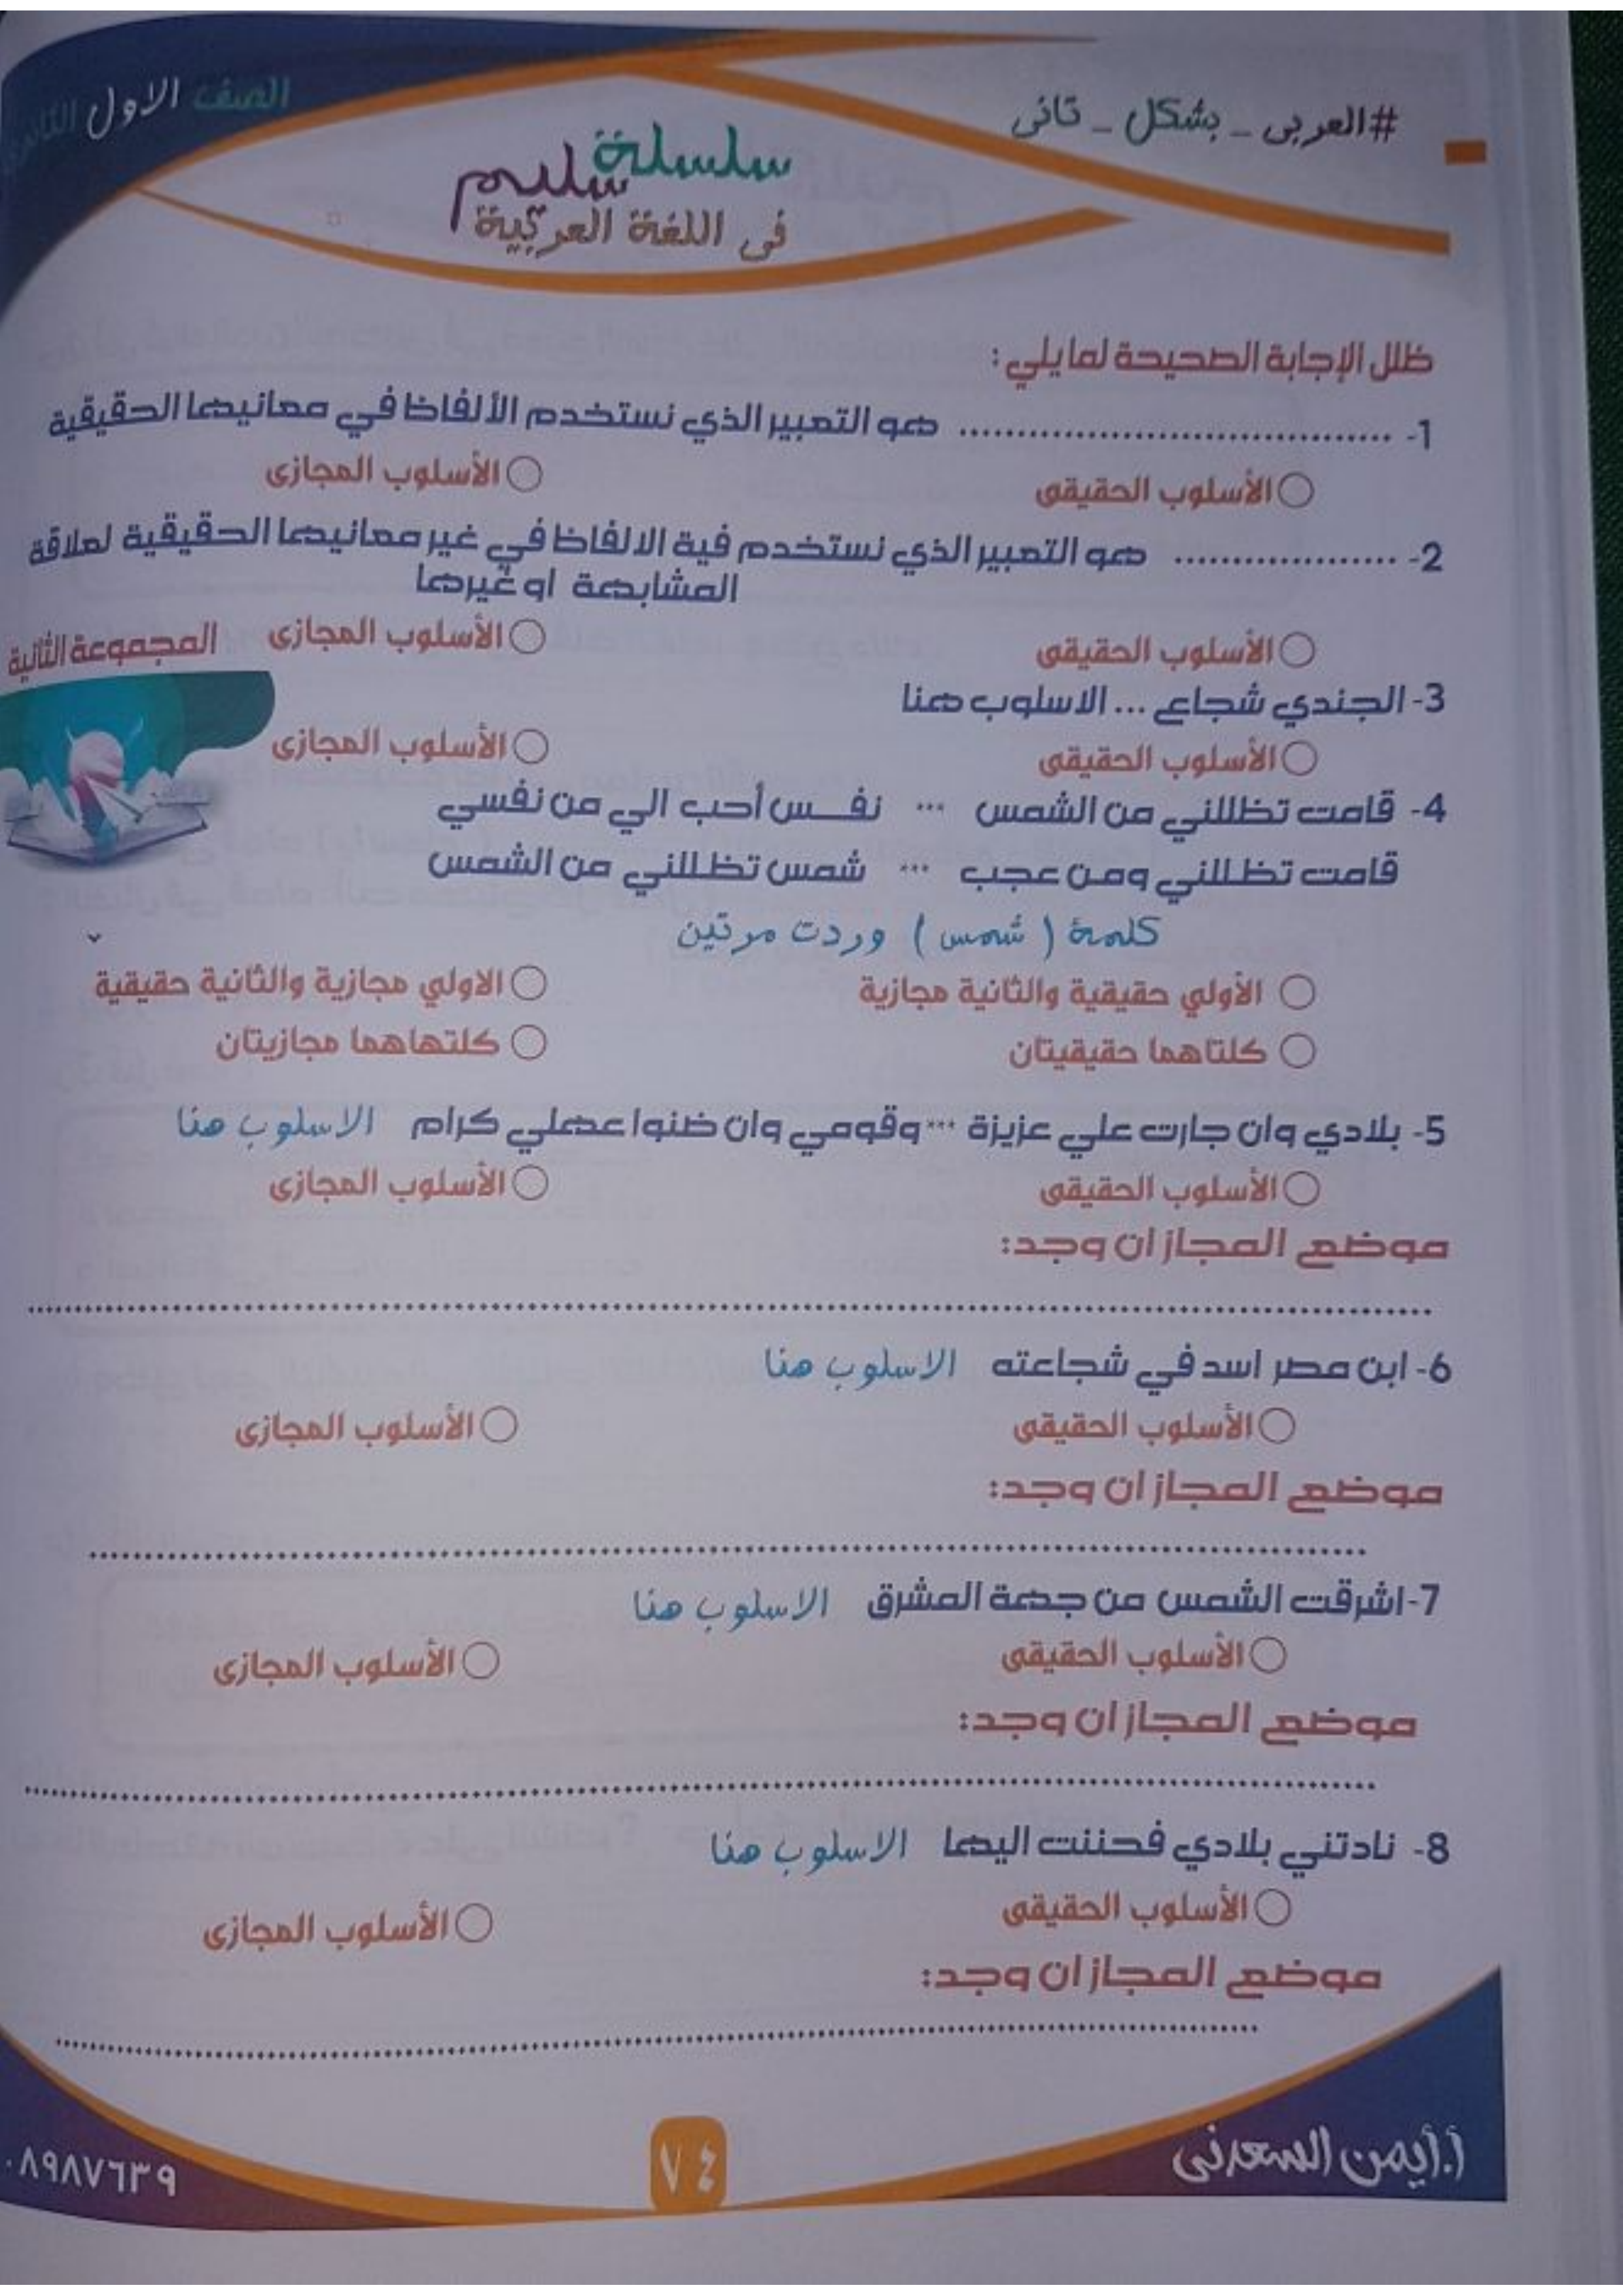 الصف الاول
#العربى _ بشكل _ تانى
سلسلة سليم
فى اللغة العربية
ظلل الإجابة الصحيحة لما يلي :
1- ........................................ هو التعبير الذي نستخدم الألفاظ في معانيها الحقيقية
الأسلوب الحقيقى الأسلوب المجازى
2- .................... هو التعبير الذي نستخدم فية الالفاظ في غير معانيها الحقيقية لعلاقة
المشابهة او غيرها
الأسلوب الحقيقى الأسلوب المجازى
المجموعة الثانية
3- الجندي شجاع ... الاسلوب هنا
الأسلوب الحقيقى الأسلوب المجازى
4- قامت تظللني من الشمس ... نفـس أحب الي من نفسي
قامت تظللني ومن عجب ... شمس تظللني من الشمس
كلمة ( شمس ) وردت مرتين
الأولي حقيقية والثانية مجازية الاولي مجازية والثانية حقيقية
كلتاهما حقيقيتان كلتهاهما مجازيتان
5- بلادي وان جارت علي عزيزة ... وقومي وان ضنوا عهلي كرام الاسلوب هنا
الأسلوب الحقيقى الأسلوب المجازى
موضع المجاز ان وجد:
6- ابن مصر اسد في شجاعته الاسلوب هنا
الأسلوب الحقيقى الأسلوب المجازى
موضع المجاز ان وجد:
7-اشرقت الشمس من جهة المشرق الاسلوب هنا
الأسلوب الحقيقى الأسلوب المجازى
موضع المجاز ان وجد:
8- نادتني بلادي فحننت اليها الاسلوب هنا
الأسلوب الحقيقى الأسلوب المجازى
موضع المجاز ان وجد:
أ.أيمن السعدنى
٧٤
٠٨٩٨٧٦٣٩